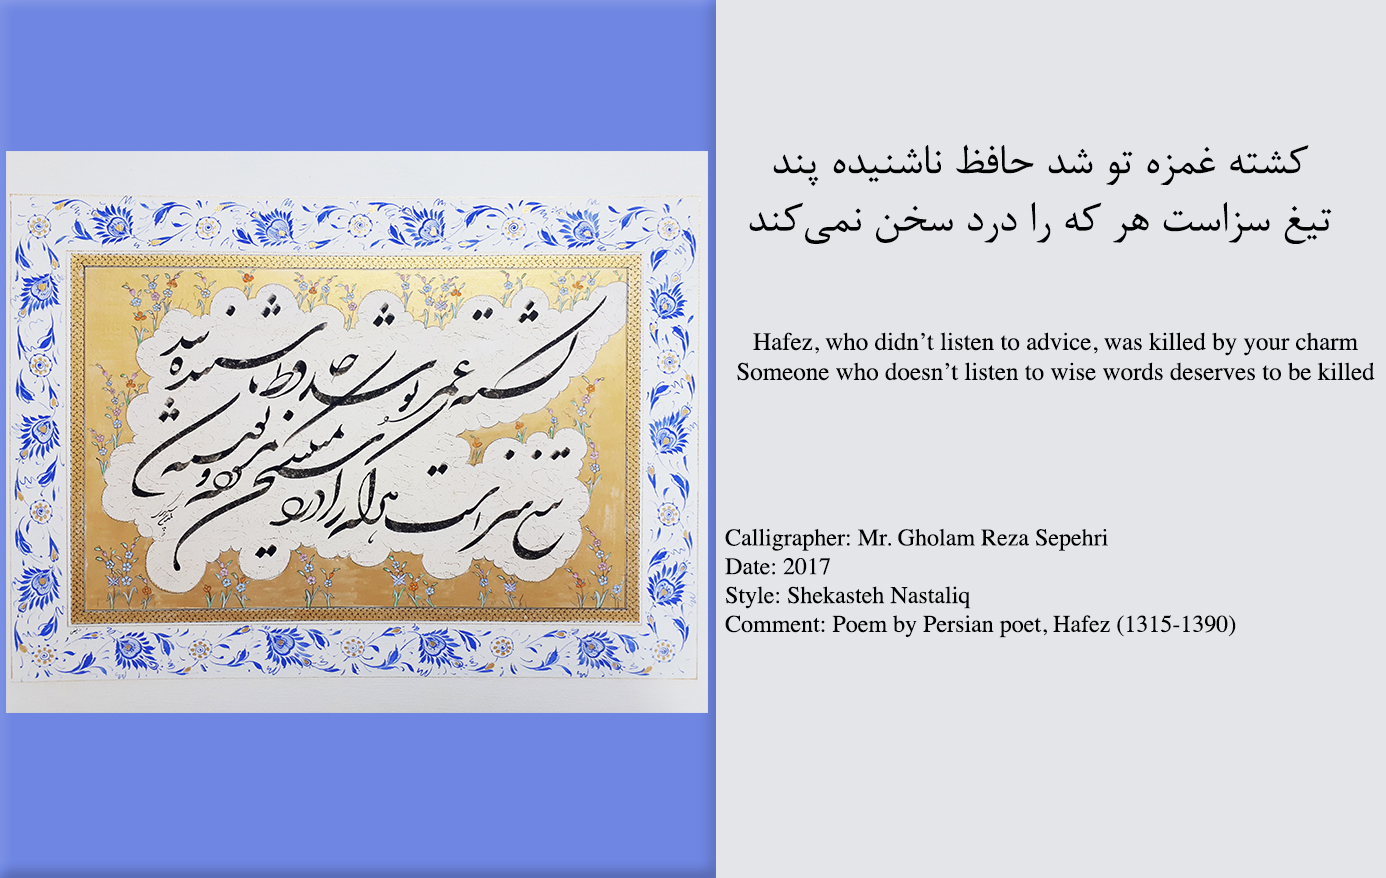 کشته غمزه تو شد حافظ ناشنیده پند
تیغ سزاست هر که را درد سخن نمیکند
کشته غمزه تو شد حافظ ناشنیده پند
تیغ سزاست هر که را درد سخن نمی‌کند
Hafez, who didn’t listen to advice, was killed by your charm
Someone who doesn’t listen to wise words deserves to be killed
Calligrapher: Mr. Gholam Reza Sepehri
Date: 2017
Style: Shekasteh Nastaliq
Comment: Poem by Persian poet, Hafez (1315-1390)